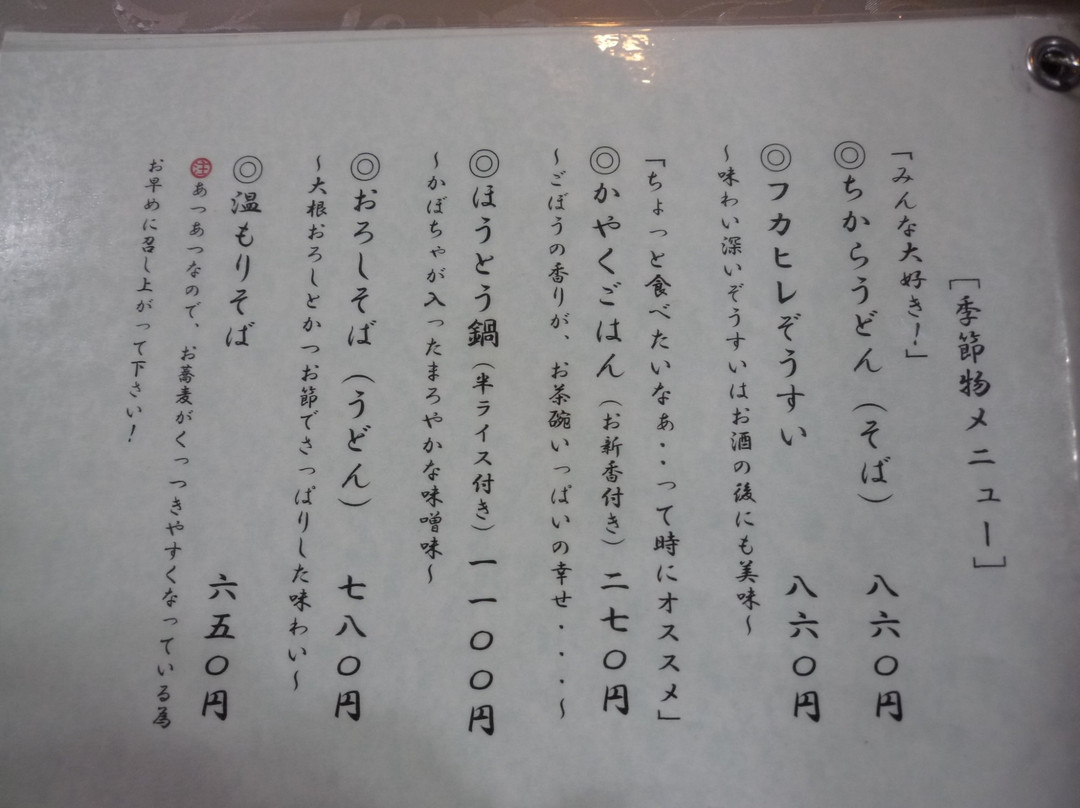 [季節物メニュー]
「みんな大好き！」
◎ちからうどん（そば） 八六〇円
◎フカヒレぞうすい 八六〇円
～味わい深いぞうすいはお酒の後にも美味～
「ちょっと食べたいなぁ・・って時にオススメ」
◎かやくごはん（お新香付き）二七〇円
～ごぼうの香りが、お茶碗いっぱいの幸せ・・・・～
◎ほうとう鍋（半ライス付き）一一〇〇円
～かぼちゃが入ったまろやかな味噌味～
◎おろしそば（うどん） 七八〇円
～大根おろしとかつお節でさっぱりした味わい～
◎温もりそば 六五〇円
㊟あつあつなので、お蕎麦がくっつきやすくなっている為
お早めに召し上がって下さい！